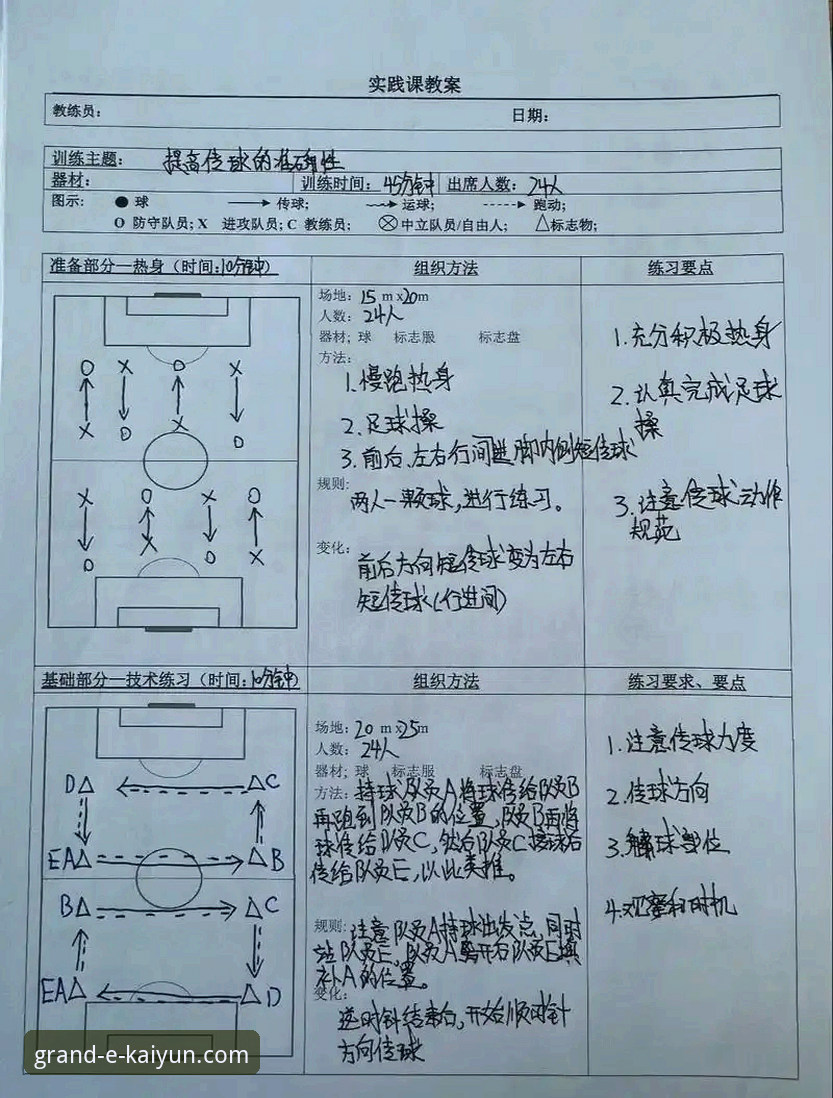 实践课教案
教练员： 日期：
训练主题： 提高传球的准确性
器材： 训练时间： 45分钟 出席人数： 24人
图示： ● 球 传球； 运球； 跑动；
O 防守队员；X 进攻队员；C 教练员； 中立队员/自由人； △标志物；
准备部分—热身（时间：10分钟） 组织方法 练习要点
场地：15 m x20m
人数：24人
器材；球 标志服 标志盘
方法：
1.慢跑热身
2.足球操
3.前后、左右行间进脚内侧短传球
规则：
两人一颗球，进行练习。
变化：
前后方向短传球变为左右
短传球（行进间）
1.充分积极热身
2.认真完成足球
操
3.注意传球动作
规范
O X O X
X O X O
X O X O
O X O X
基础部分—技术练习（时间：10分钟） 组织方法 练习要求、要点
场地：20 m x25m
人数：24人
器材；球 标志服 标志盘
方法：持球队员A将球传给队员B
再跑到队员B的位置，队员B再将
球传给队员C，然后队员C接球后
传给队员E，以此类推。
规则：注意队员A持球出发点，同时
站队员E，队员A离开后队员E填
补A的位置。
变化：
逆时针结束后，开始顺时针
方向传球
1.注意传球力度
2.传球方向
3.触球部位
4.观察和时机
D△ △C
EA△ △B
B△ △C
EA△ △D
grand-e-kaiyun.com